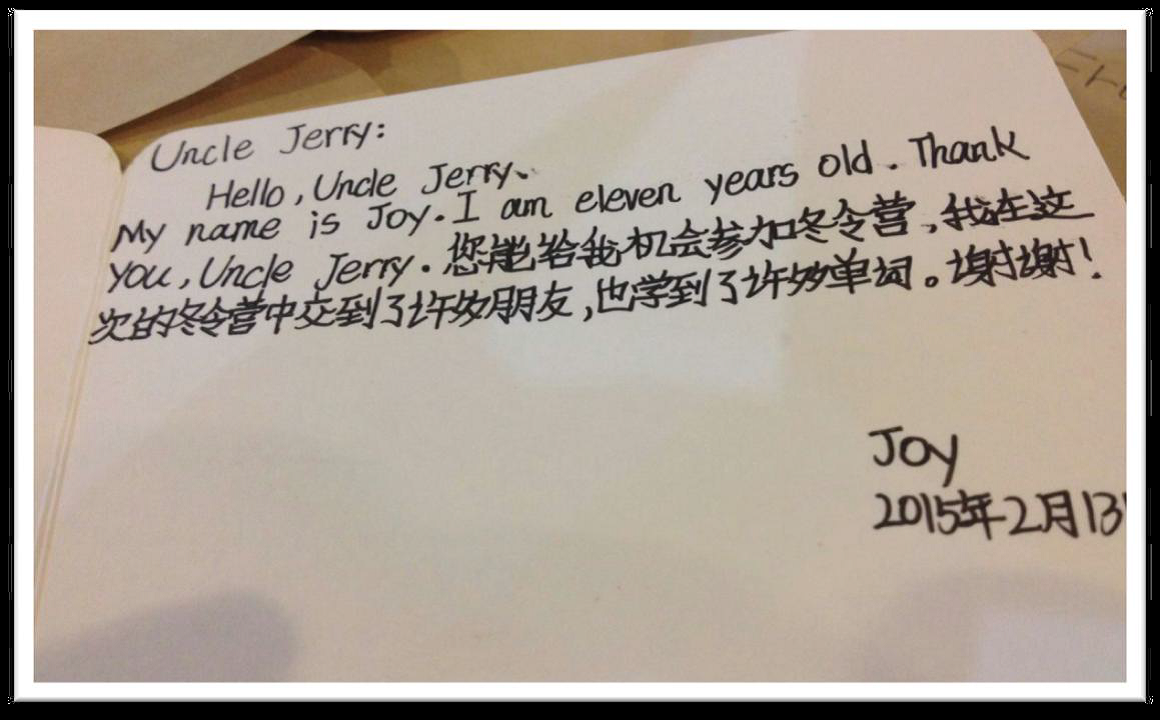 Uncle Jerry:
Hello, Uncle Jerry、
My name is Joy. I am eleven years old. Thank
you, Uncle Jerry. 您能给我机会参加冬令营,我在这
次的冬令营中交到了许多朋友,也学到了许多单词。谢谢!
Joy
2015年2月13